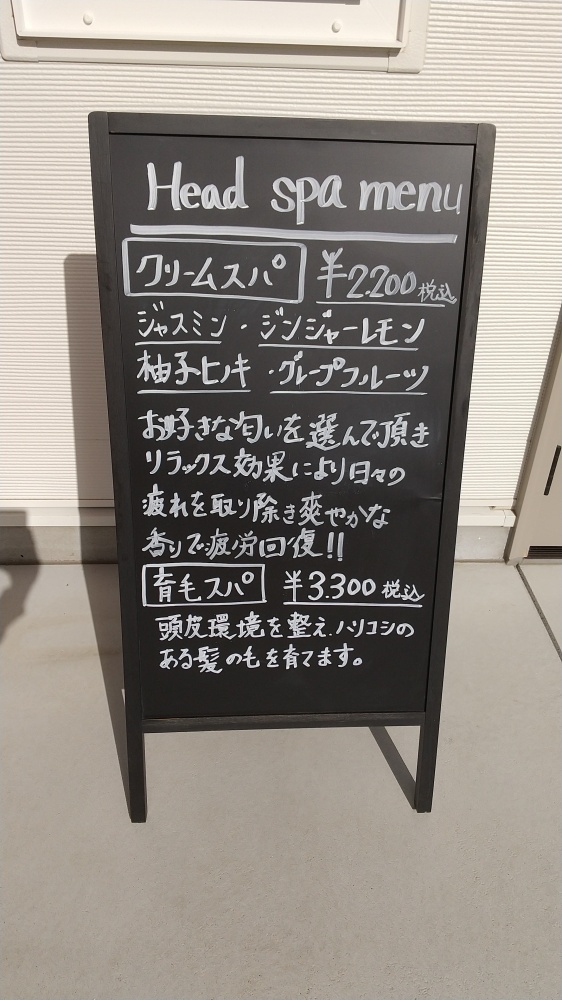 Head spa menu
クリームスパ ¥2.200 税込
ジャスミン・ジンジャーレモン
柚子ヒノキ・グレープフルーツ
お好きな匂いを選んで頂き
リラックス効果により日々の
疲れを取り除き爽やかな
香りで疲労回復!!
育毛スパ ¥3.300 税込
頭皮環境を整え、ハリコシの
ある髪の毛を育てます。